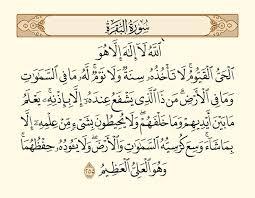 سُورَةُ البَقَرَةِ
ٱللَّهُ لَآ إِلَٰهَ إِلَّا هُوَ
ٱلْحَىُّ ٱلْقَيُّومُ لَا تَأْخُذُهُۥ سِنَةٌ وَلَا نَوْمٌ لَّهُۥ مَا فِى ٱلسَّمَٰوَٰتِ
وَمَا فِى ٱلْأَرْضِ مَن ذَا ٱلَّذِى يَشْفَعُ عِندَهُۥٓ إِلَّا بِإِذْنِهِۦ يَعْلَمُ
مَا بَيْنَ أَيْدِيهِمْ وَمَا خَلْفَهُمْ وَلَا يُحِيطُونَ بِشَىْءٍ مِّنْ عِلْمِهِۦٓ إِلَّا
بِمَا شَآءَ وَسِعَ كُرْسِيُّهُ ٱلسَّمَٰوَٰتِ وَٱلْأَرْضَ وَلَا يَـُٔودُهُۥ حِفْظُهُمَا
وَهُوَ ٱلْعَلِىُّ ٱلْعَظِيمُ ٢٥٥